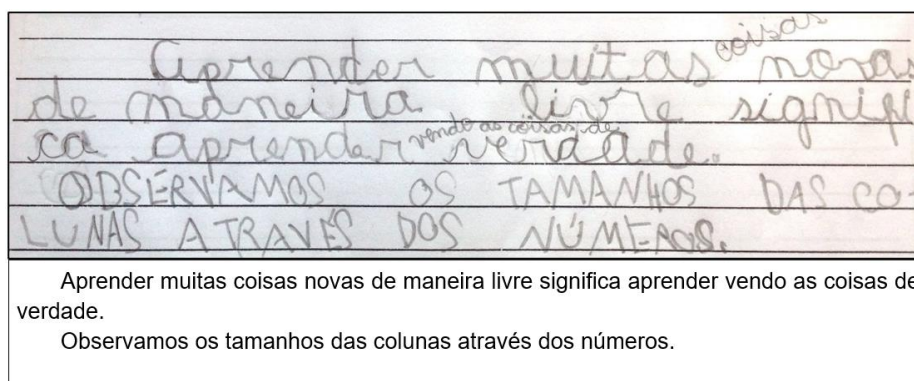 Aprender muitas coisas novas
de maneira livre signifi
ca aprender vendo as coisas de verdade.
OBSERVAMOS OS TAMANHOS DAS CO-
LUNAS ATRAVÉS DOS NÚMEROS.
Aprender muitas coisas novas de maneira livre significa aprender vendo as coisas de
verdade.
Observamos os tamanhos das colunas através dos números.